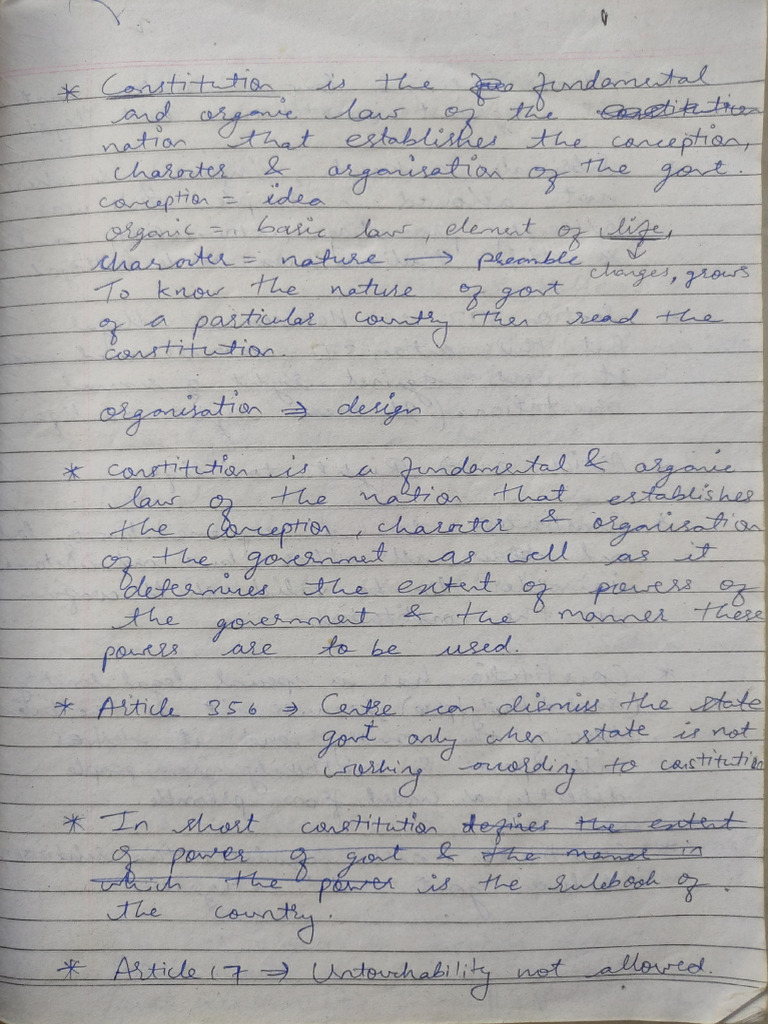 * Constitution is the fundamental
and organic law of the constitution
nation that establishes the conception,
character & organisation of the govt.
conception = idea
organic = basic law, element of life,
character = nature → preamble changes, grows
To know the nature of govt
of a particular country then read the
constitution.
organisation ⇒ design
* constitution is a fundamental & organic
law of the nation that establishes
the conception, character & organisation
of the governmet as well as it
determines the extent of powers of
the government & the manner these
powers are to be used.
* Article 356 → Centre can dismiss the state
govt only when state is not
working according to constitution
* In short constitution defines the extent
of power of govt & the manner in
which the power is the rulebook of.
the country.
* Article 17 ⇒ Untouchability not allowed.